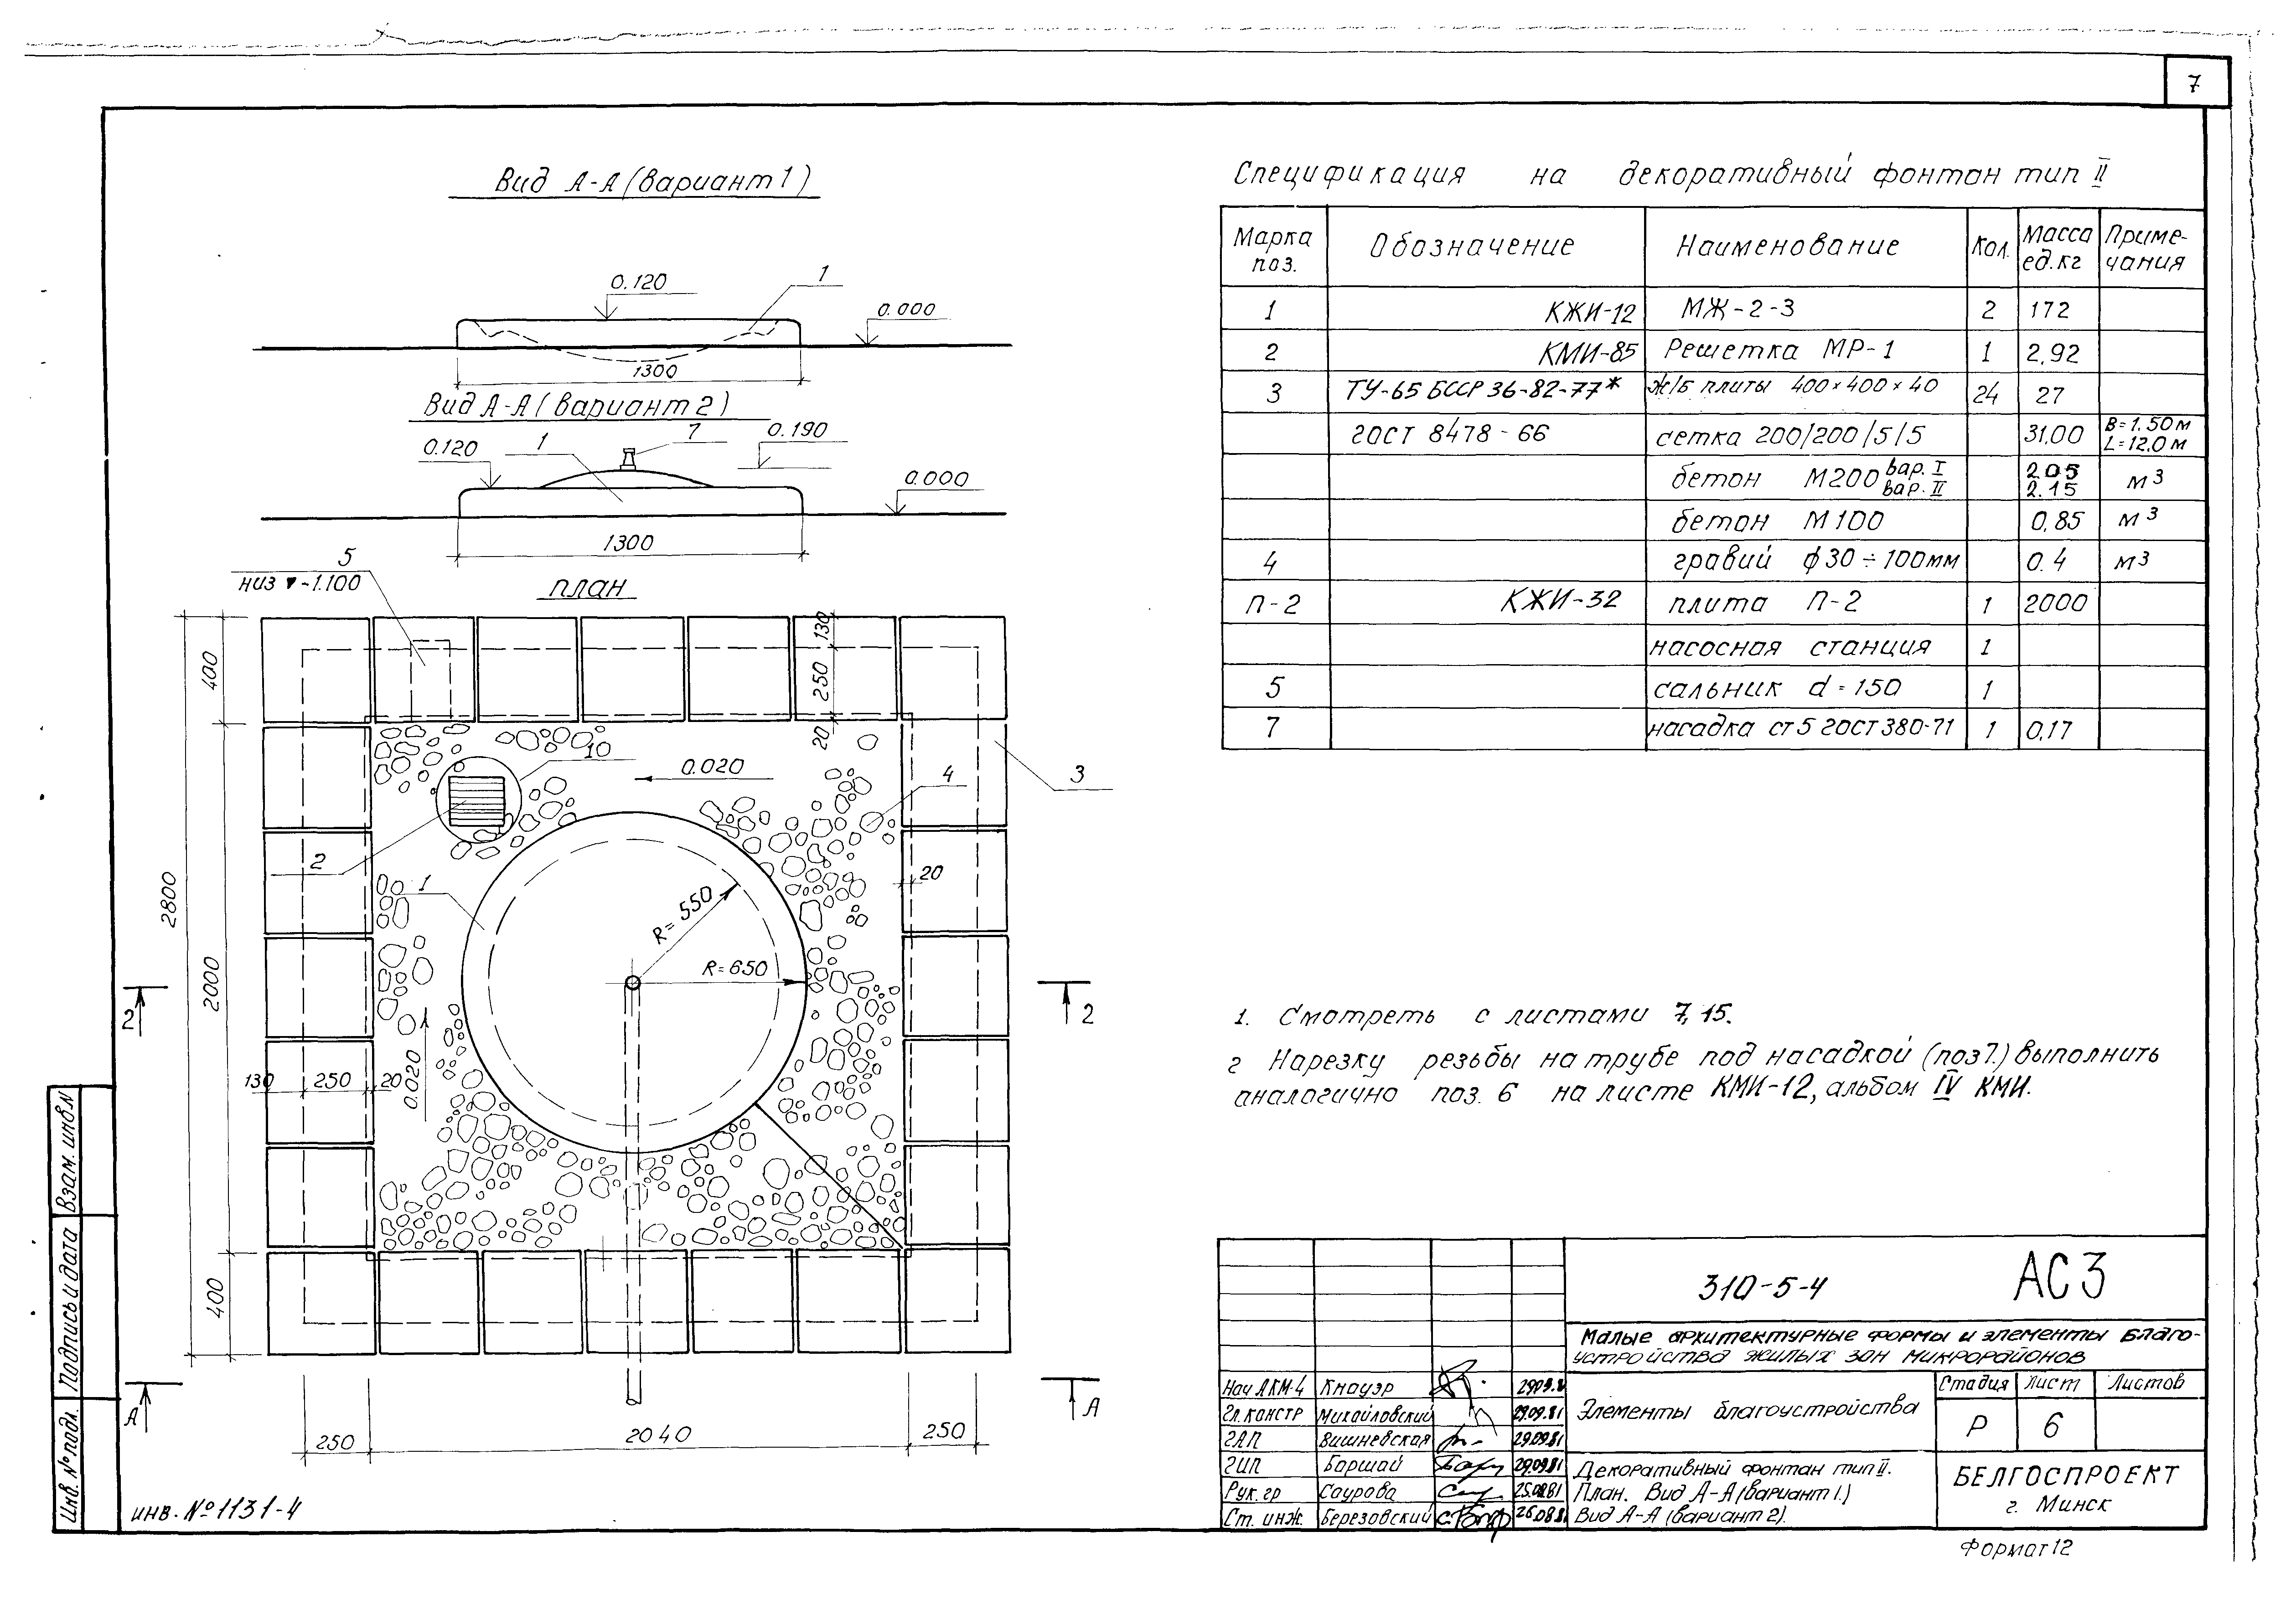 7
Вид А-А (вариант 1)
0.120
1
0.000
1300
Вид А-А (вариант 2)
0.120
1
7
0.190
0.000
1300
5
низ -1.100
план
400
2000
400
2800
130
250
20
10
0.020
4
3
2
1
20
R=550
R=650
2
2
130
250
20
0.020
А
А
250
2040
250
Спецификация на декоративный фонтан тип II
Марка поз. Обозначение Наименование Кол. Масса ед.кг Примечания
1 КЖИ-12 МЖ-2-3 2 172
2 КМИ-85 Решетка МР-1 1 2.92
3 ТУ-65 БССР 36-82-77* Ж/Б плиты 400×400×40 24 27
ГОСТ 8478-66 сетка 200/200/5/5 31.00 В=1.50м L=12.0м
бетон М200 вар. I вар. II 2.05 2.15 м3
бетон М100 0,85 м3
4 гравий ф30÷100мм 0.4 м3
П-2 КЖИ-32 плита П-2 1 2000
насосная станция 1
5 сальник d=150 1
7 насадка ст5 ГОСТ 380-71 1 0,17
1. Смотреть с листами 7, 15.
2 Нарезку резьбы на трубе под насадкой (поз7.) выполнить
аналогично поз. 6 на листе КМИ-12, альбом IV КМИ.
310-5-4 АС3
Малые архитектурные формы и элементы благо-
устройства жилых зон микрорайонов
Нач АКМ-4 Кнауэр
Гл.констр Михайловский 29.09.81
ГАП Вишневская 29.09.81
ГИП Баршай 29.09.81
Рук.гр Саурова
Ст. инж. Березовский
Элементы благоустройства
Стадия Лист Листов
Р 6
Декоративный фонтан тип II.
План. Вид А-А (вариант 1.)
Вид А-А (вариант 2).
БЕЛГОСПРОЕКТ
г. Минск
Формат 12
Взам. инв N
Подпись и дата
Инв. № подл.
инв. №1131-4